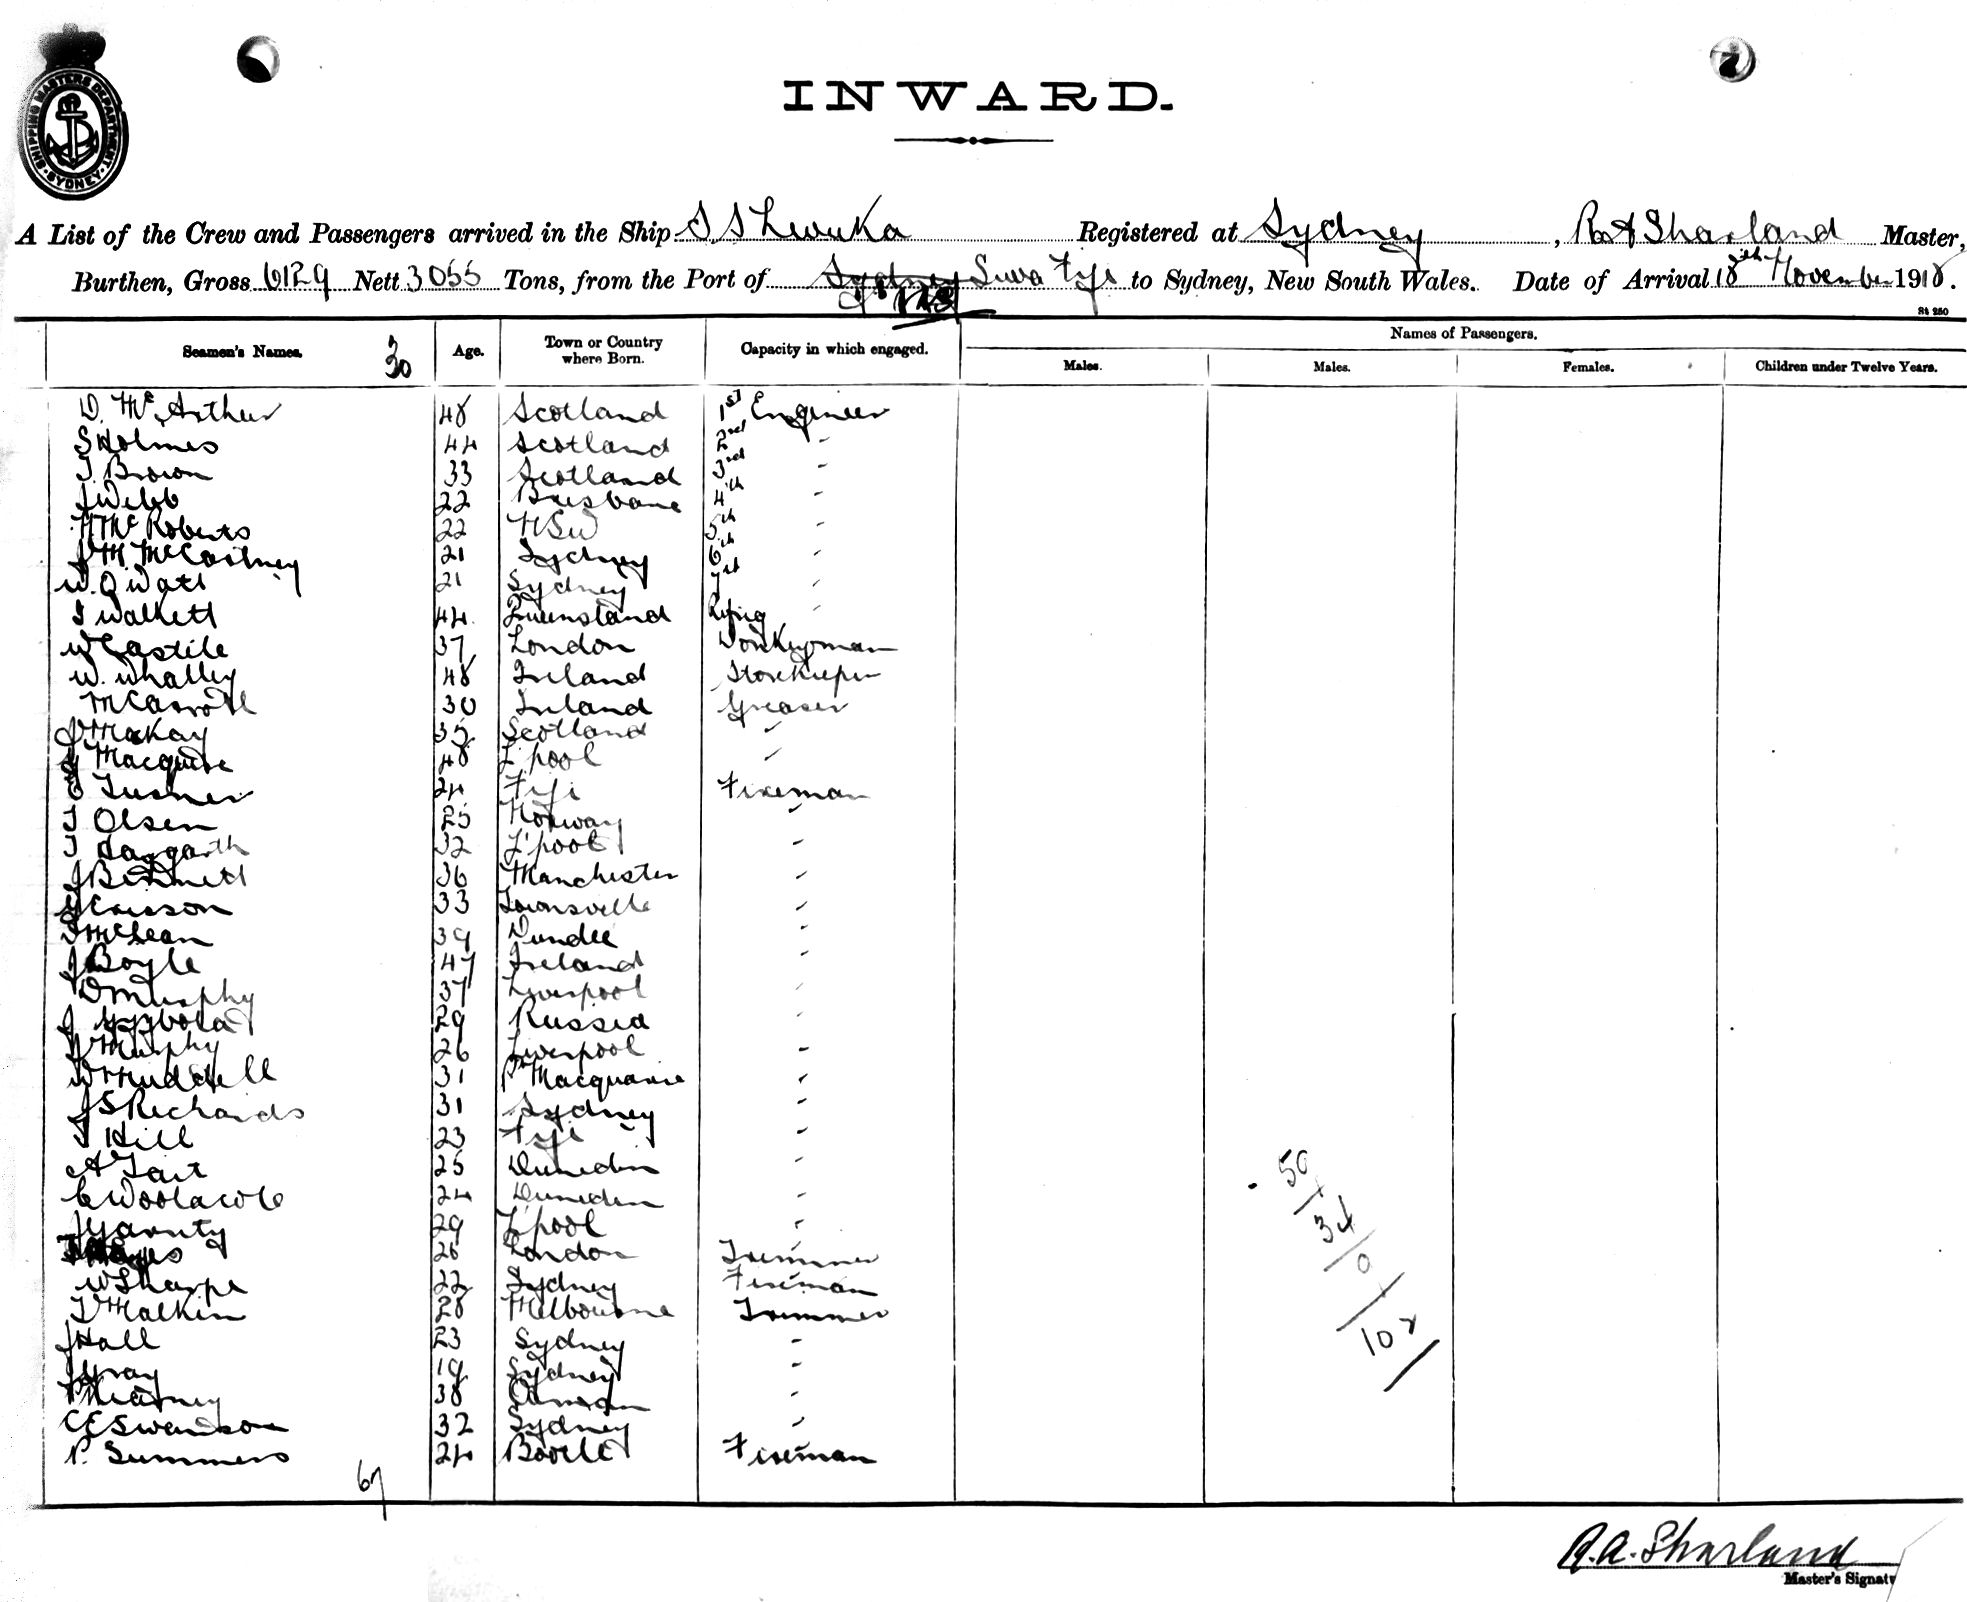 SHIPPING MASTERS DEPARTMENT
SYDNEY
INWARD.
A List of the Crew and Passengers arrived in the Ship S.S Levuka Registered at Sydney, R A Sharland Master,
Burthen, Gross 6129 Nett 3055 Tons, from the Port of Sydney Suva Fiji to Sydney, New South Wales. Date of Arrival 18th November 1918.
St 250
Seamen's Names. 30 Age. Town or Country where Born. Capacity in which engaged. Names of Passengers.
Males. Males. Females. Children under Twelve Years.
D. McArthur 48 Scotland 1st Engineer
S Holmes 44 Scotland 2nd "
T. Brown 33 Scotland 3rd "
J Webb 22 Brisbane 4th "
McRoberts 22 NSW 5th "
J M McCartney 21 Sydney 6th "
W. O Watt 21 Sydney 7th "
44 Queensland Refrig "
W Castile 37 London Donkeyman
W. Whalley 48 Ireland Storekeeper
M Carroll 30 Ireland Greaser
J McKay 35 Scotland "
J Macquire 48 L'pool "
E Turner 24 Fiji Fireman
T Olsen 25 Norway "
T Haggarth 32 L'pool "
J Bennett 36 Manchester "
33 Townsville "
T McLean 39 Dundee "
J Boyle 47 Ireland "
D Murphy 37 Liverpool "
J 29 Russia "
J Murphy 26 Liverpool "
W Muddell 31 Pt Macquarie "
J S Richards 31 Sydney "
T Hill 23 Fiji "
A Tait 25 Dunedin "
C Woolacote 24 Dunedin "
J Garnty 29 L'pool "
26 London Trimmer
W Sharpe 22 Sydney Fireman
T Malkin 28 Melbourne Trimmer
J Hall 23 Sydney "
J Gray 19 Sydney "
P Kearney 38 "
C E Swendson 32 Sydney "
P. Summers 24 Bootle Fireman
67
50
34
0
102
R. A. Sharland
Master's Signatu